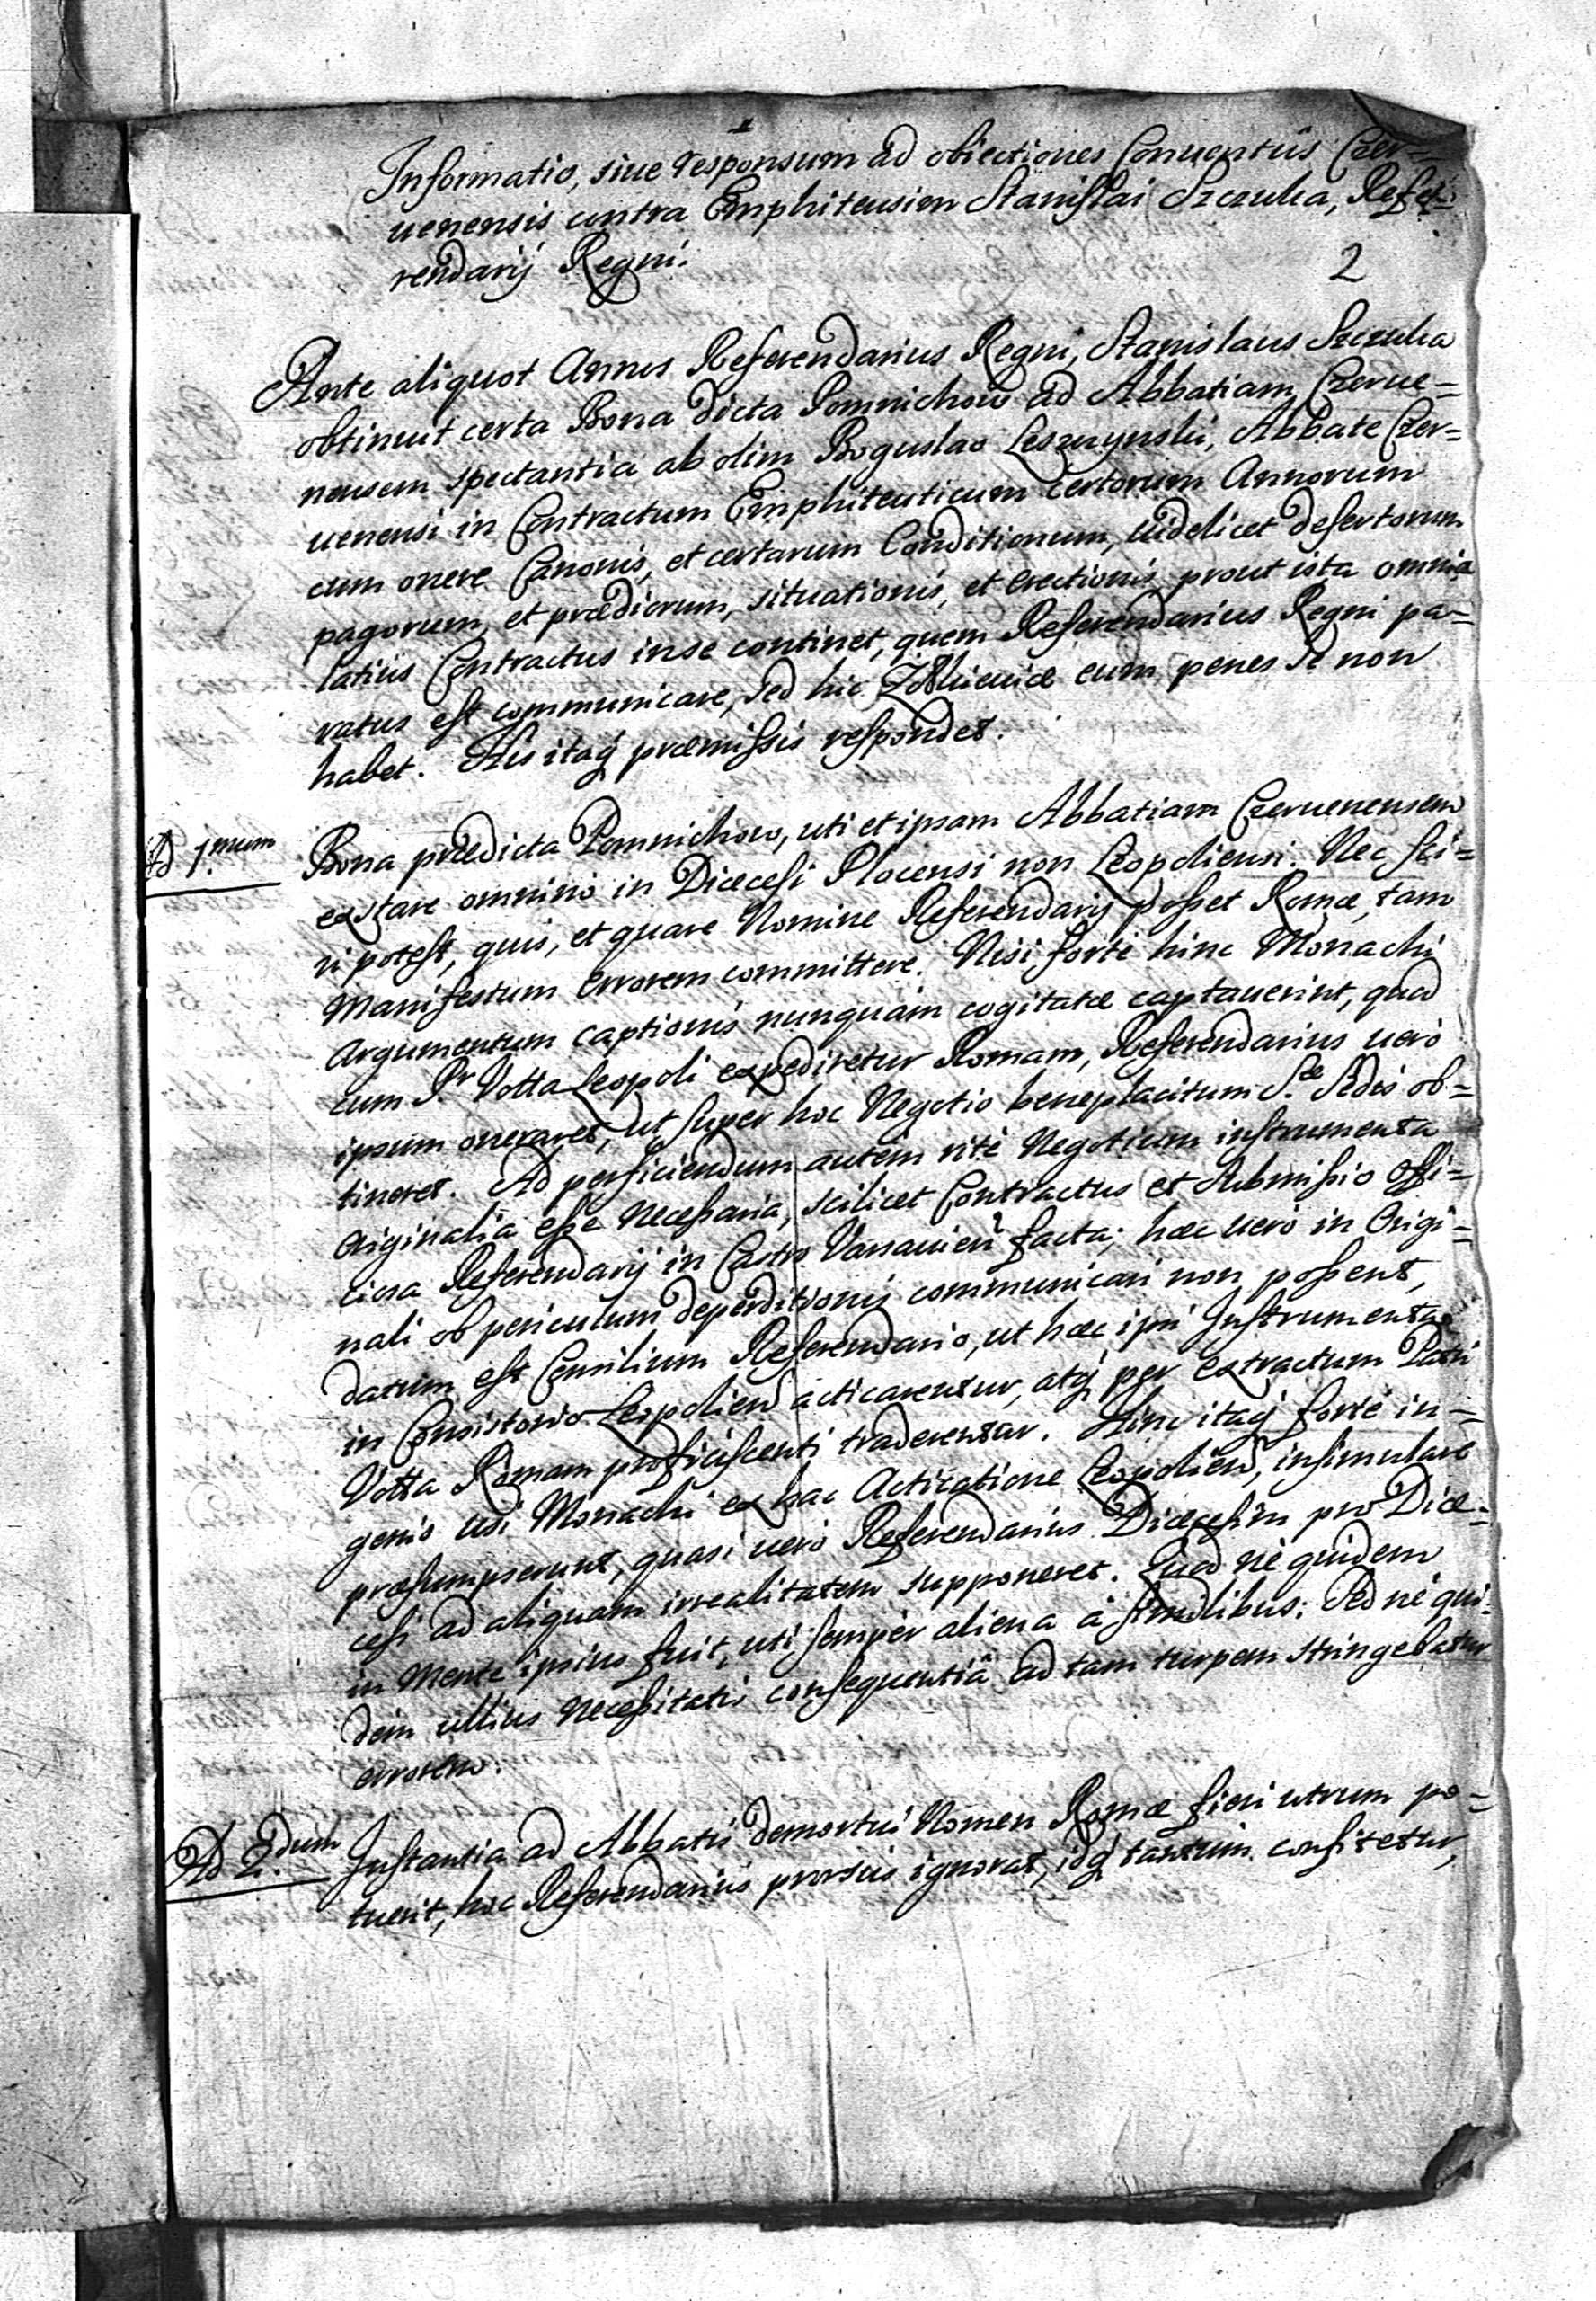 Informatio, siue responsum ad obiectiones Conuentûs Czer=
uenensis contra Emphiteusim Stanislai Szczuka, Refe=
rendarij Regni.
2
Ante aliquot Annos Referendarius Regni, Stanislaus Szczuka
obtinuit certa Bona dicta Pomnichow ad Abbatiam Czerue=
nensem spectantia ab olim Boguslao Leszczynski, Abbate Czer=
uenensi in Contractum Emphiteuticum certorum Annorum
cum onere Canonis, et certarum Conditionum, uidelicet desertorum
pagorum, et prædiorum, situationis, et erectionis prout ista omnia
latius Contractus in se continet, quem Referendarius Regni pa=
ratus est communicare, sed hic Zolkieuiæ eum penes se non
habet. His itaq præmissis respondet.
Ad 1.mum
Bona prædicta Pomnichow, uti et ipsam Abbatiam Czeruenensem
extare omninò in Diæcesi Plocensi non Leopoliensi. Nec sci=
ri potest, quis, et quare Nomine Referendarij posset Romæ, tam
Manifestum Errorem committere. Nisi fortè hinc Monachi
Argumentum captionis nunquàm cogitatæ captauerint, quod
cum Pr Votta Leopoli expediretur Romam, Referendarius uerò
ipsum oneraret, ut super hoc Negotio beneplacitum S.æ Sedis ob=
tineret. Ad perficiendum autem ritè Negotium instrumenta
Originalia esse Necessaria, scilicet Contractus et Submissio offi=
ciosa Referendarij in Castro Varsauien facta; hæc uerò in Origi=
nali ob periculum deperditionis communicari non possent,
datum est Consilium Referendario, ut hæc ipsa Instrumenta
in Consistorio Leopolien acticarentur, atq per extractum Patri
Votta Romam proficiscenti traderentur. Hinc itaq fortè in=
genio usi Monachi ex hac Acticatione Leopolien, insimulare
præsumpserunt, quasi uerò Referendarius Diæcesim pro Diæ=
cesi ad aliquam irrealitatem supponeret. Quod nè quidem
in Mente ipsius fuit, uti semper aliena à similibus: Sed nè qui=
dem ullius Necessitatis consequentiâ ad tam turpem stringebatur
errorem.
Ad 2.dum
Instantia ad Abbatis demortui Nomen Romæ fieri utrum po=
tuerit, hoc Referendarius prorsus ignorat, idq tantum confitetur,